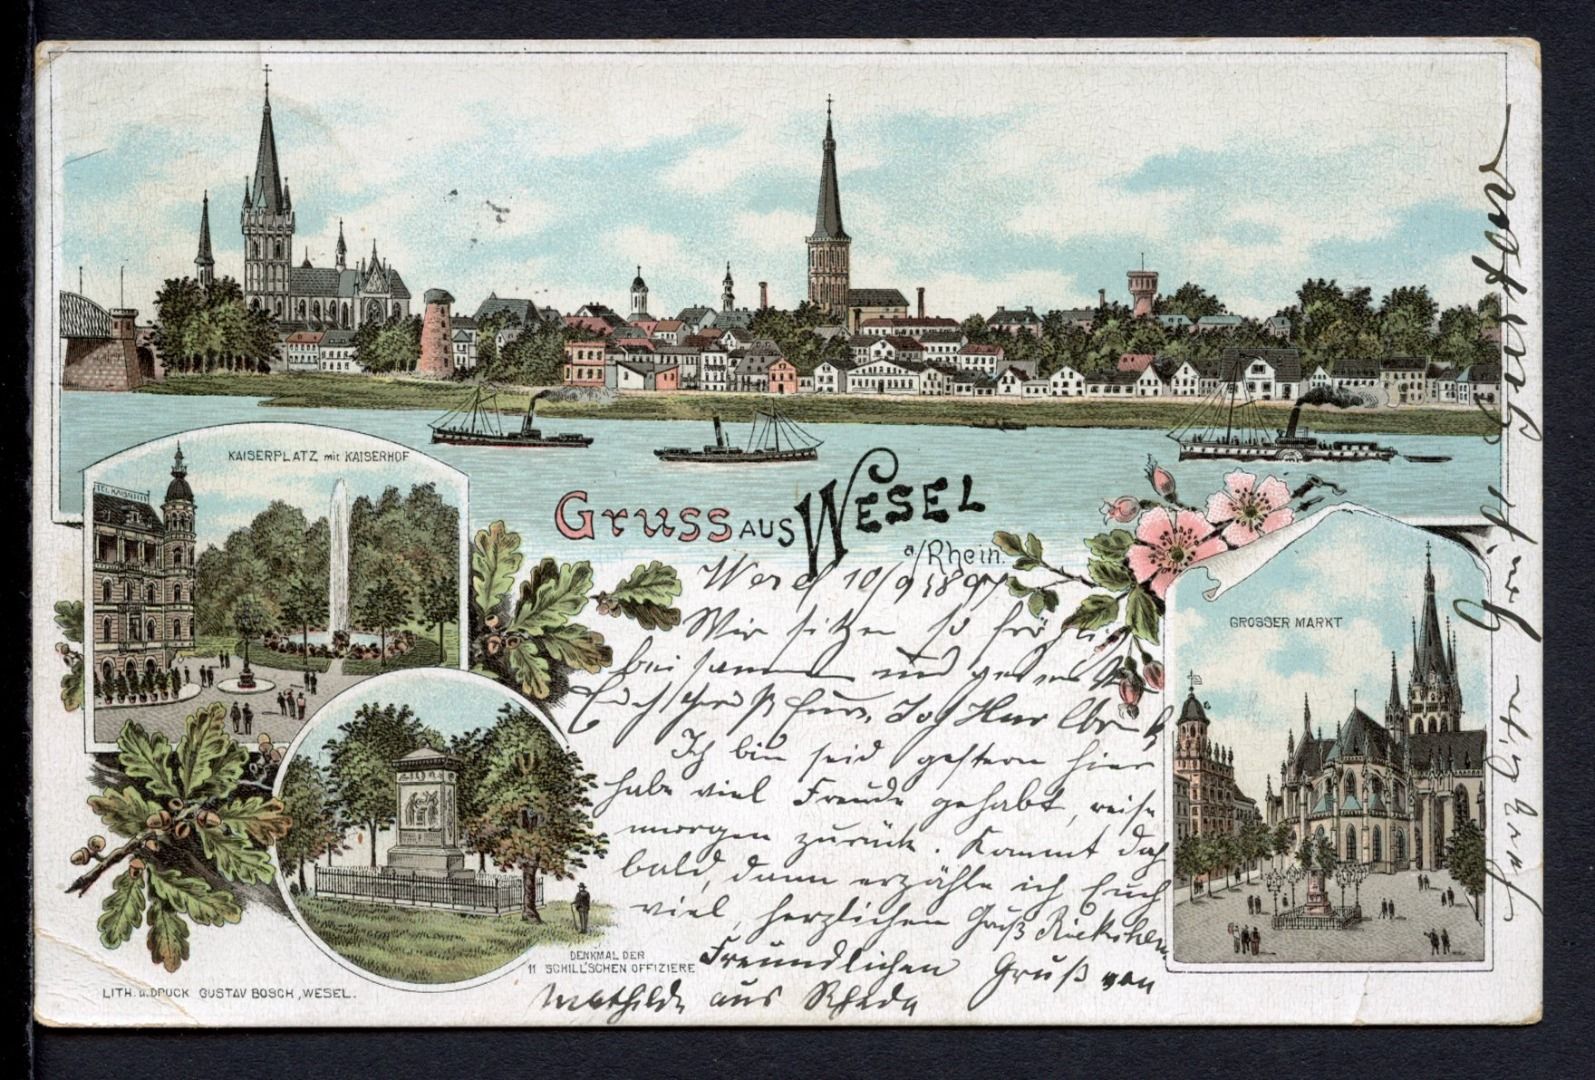 KAISERPLATZ mit KAISERHOF
GRUSS AUS WESEL
a/Rhein.
GROSSER MARKT
DENKMAL DER
11 SCHILL'SCHEN OFFIZIERE
LITH. u. DRUCK GUSTAV BOSCH, WESEL.
Wesel 10/9 1897
Wir sitzen so fröhlich
beisammen und
Ich bin seid gestern hier
habe viel Freude gehabt, reise
morgen zurück. Kommt doch
bald, dann erzähle ich Euch
viel, herzlichen Gruß
Freundlichen Gruß von
Mathilde aus Rheda
Gruß
herzlichen